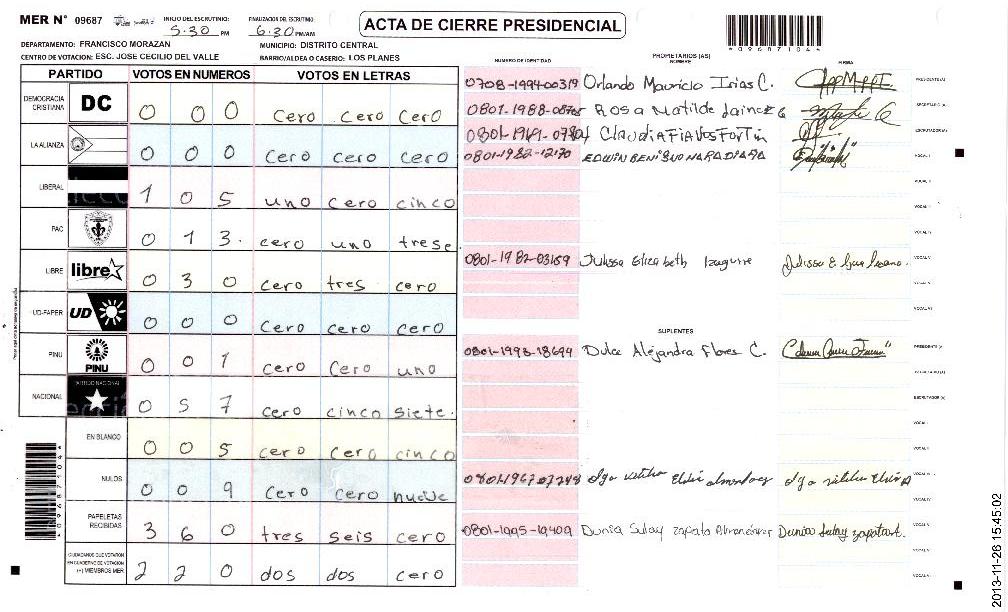 MER N° 09687
INICIO DEL ESCRUTINIO: 5:30 PM
FINALIZACION DEL ESCRUTINIO: 6:30 PM/AM
ACTA DE CIERRE PRESIDENCIAL
096871044
DEPARTAMENTO: FRANCISCO MORAZAN
MUNICIPIO: DISTRITO CENTRAL
CENTRO DE VOTACION: ESC. JOSE CECILIO DEL VALLE
BARRIO/ALDEA O CASERIO: LOS PLANES
PARTIDO VOTOS EN NUMEROS VOTOS EN LETRAS
DEMOCRACIA CRISTIANA DC 0 0 0 cero cero cero
LA ALIANZA 0 0 0 cero cero cero
LIBERAL 1 0 5 uno cero cinco
PAC 0 13. cero uno trese
LIBRE libre 0 3 0 cero tres cero
UD-FAPER UD 0 0 0 cero cero cero
PINU PINU 0 0 1 cero cero uno
NACIONAL PARTIDO NACIONAL 0 5 7 cero cinco siete.
EN BLANCO 0 0 5 cero cero cinco
NULOS 0 0 9 cero cero nueve
PAPELETAS RECIBIDAS 3 6 0 tres seis cero
CIUDADANOS QUE VOTARON EN CUADERNO DE VOTACION (+) MIEMBROS MER 2 2 0 dos dos cero
NUMERO DE IDENTIDAD PROPIETARIOS (AS) NOMBRE FIRMA
0708-1994-00319 Orlando Mauricio Irias C. PRESIDENTE (A)
0801-1988- Rosa Matilde Lainez G SECRETARIO (A)
0801-1961- Claudia Fiallos Fortin ESCRUTADOR (A)
0801-1982-12170 EDWIN VOCAL I
VOCAL II
VOCAL III
VOCAL IV
0801-1982-03159 Julissa Elizabeth Izaguirre Julissa E. VOCAL V
VOCAL VI
SUPLENTES
0801-1993-18699 Dulce Alejandra Flores C. PRESIDENTE (A)
SECRETARIO (A)
ESCRUTADOR (A)
VOCAL I
VOCAL II
VOCAL III
VOCAL IV
0801-1995-19409 Dunia Sulay zapata Dunia Sulay VOCAL V
VOCAL VI
2013-11-26 15:45:02